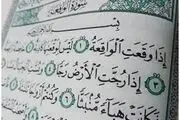 سُورَةُ الْوَاقِعَةِ
بِسْمِ
إِذَا وَقَعَتِ الْوَاقِعَةُ ١ لَيْسَ لِوَقْعَتِهَا
٣ إِذَا رُجَّتِ الْأَرْضُ رَجًّا ٤ وَبُسَّتِ
فَكَانَتْ هَبَاءً مُنْبَثًّا ٦ وَكُنْتُمْ